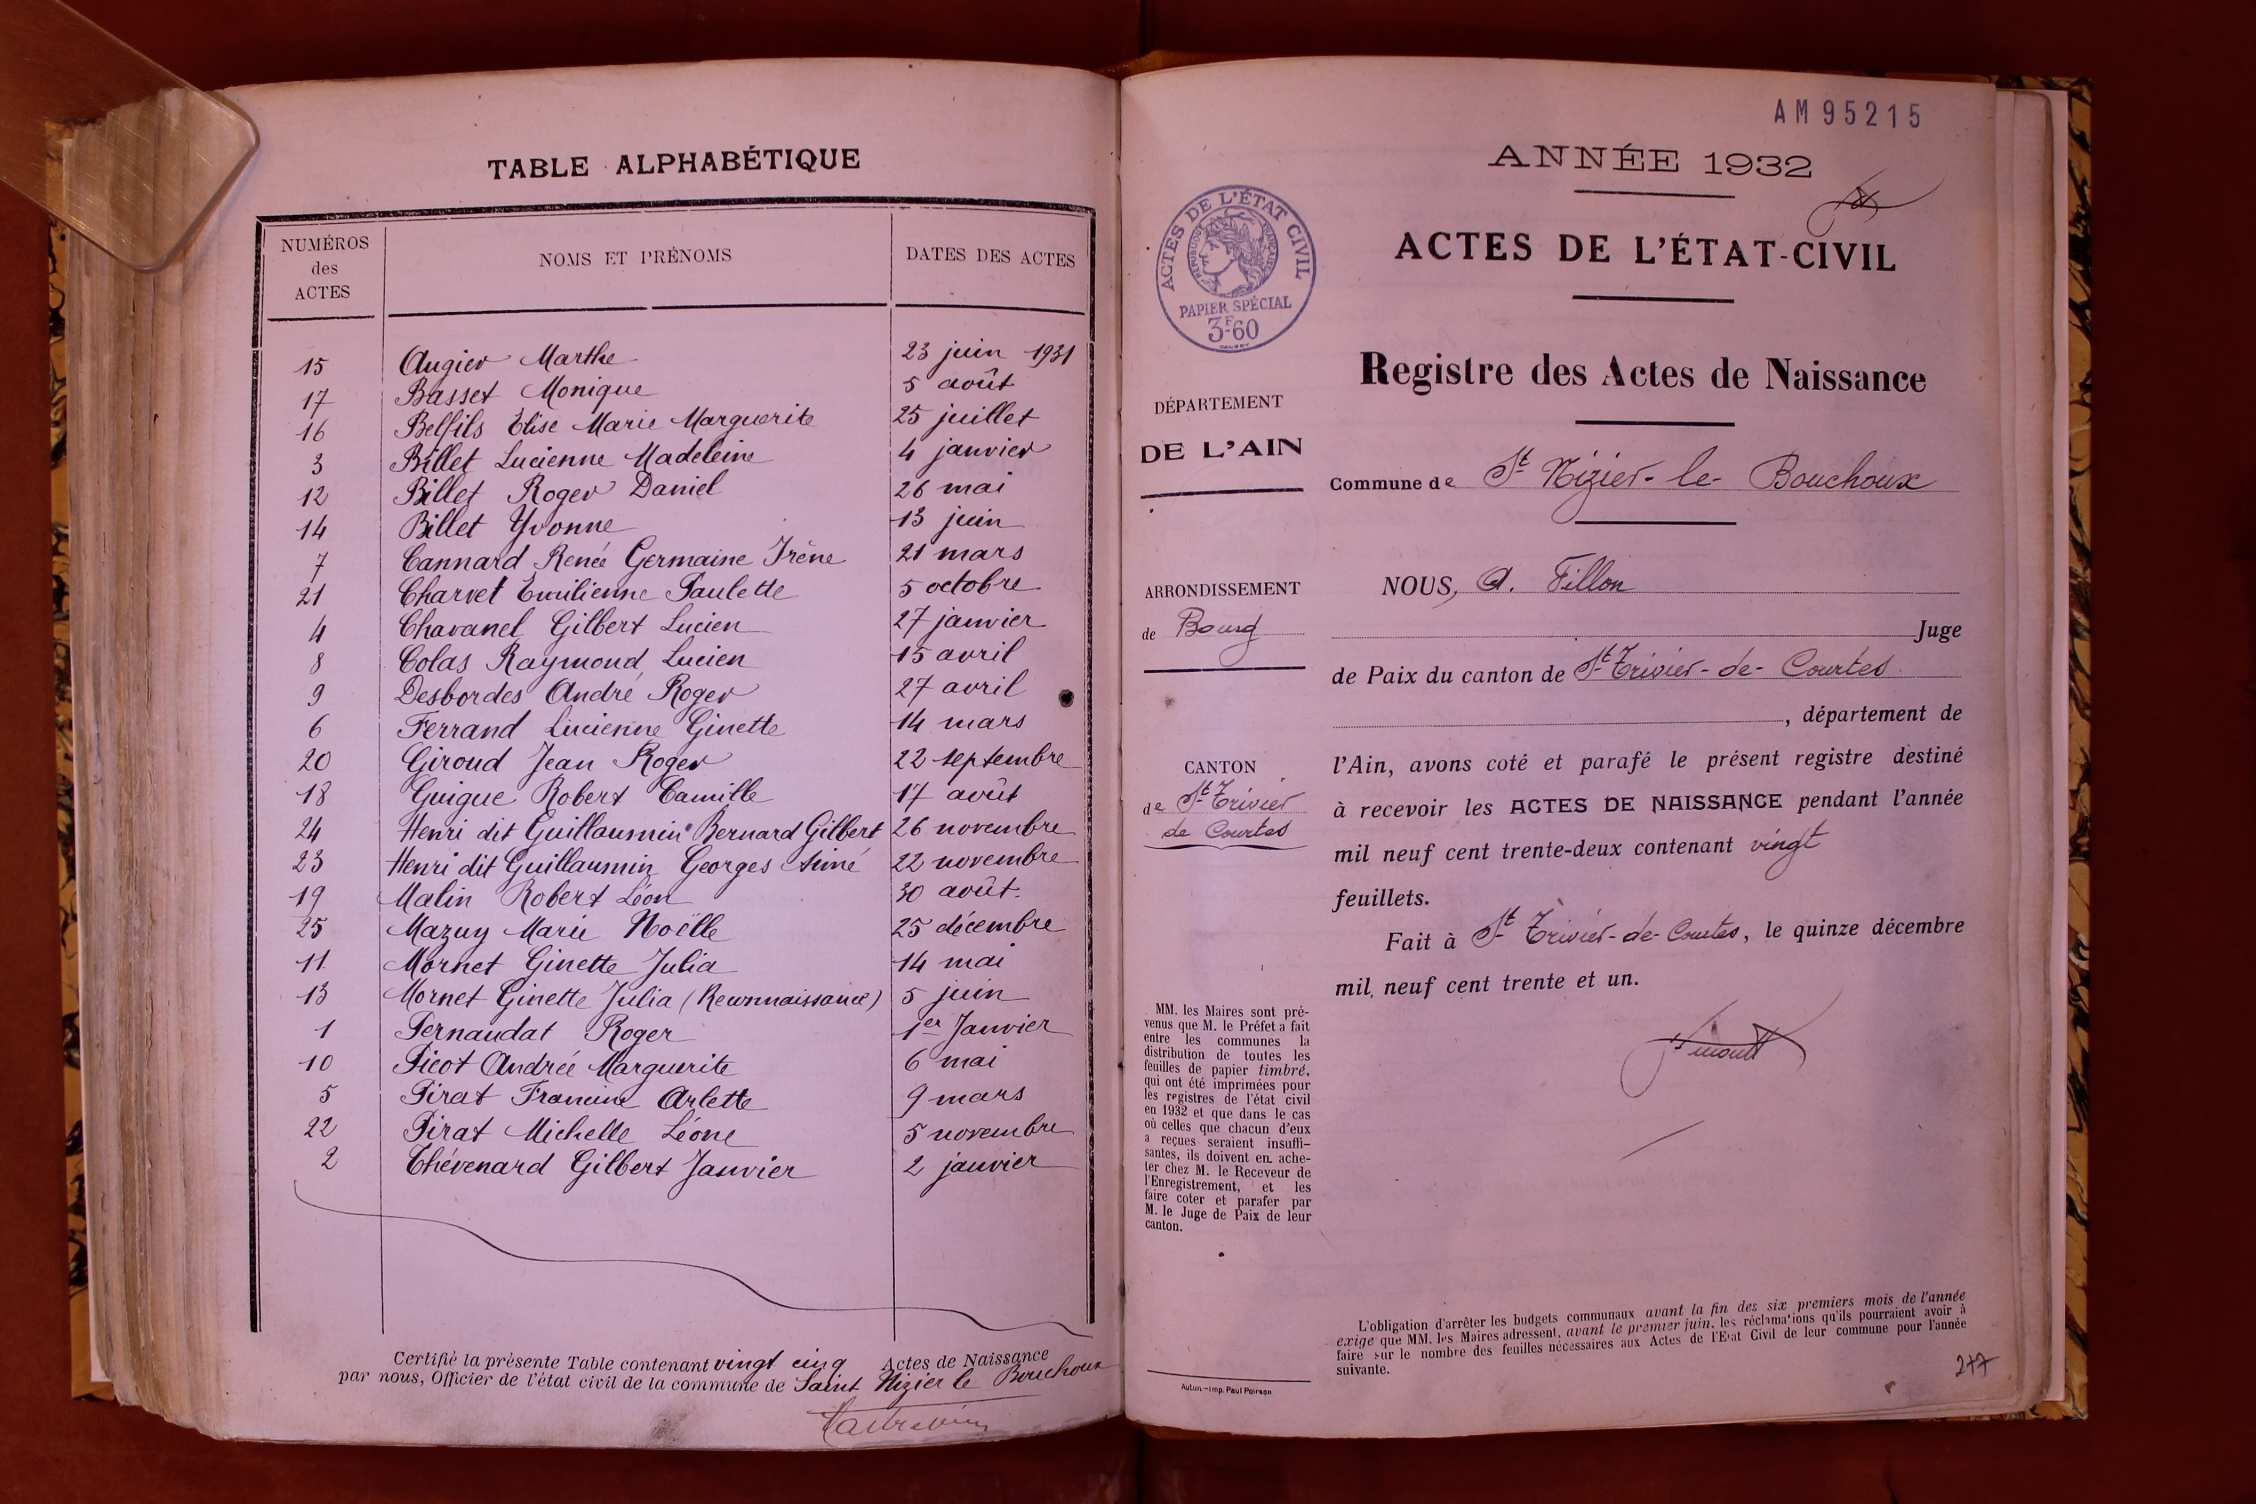 TABLE ALPHABÉTIQUE
NUMÉROS des ACTES
NOMS ET PRÉNOMS
DATES DES ACTES
15 Augier Marthe 23 juin 1931
17 Basset Monique 5 août
16 Belfils Elise Marie Marguerite 25 juillet
3 Billet Lucienne Madeleine 4 janvier
12 Billet Roger Daniel 26 mai
14 Billet Yvonne 13 juin
7 Cannard Renée Germaine Irène 21 mars
21 Charvet Emilienne Paulette 5 octobre
4 Chavanel Gilbert Lucien 27 janvier
8 Colas Raymond Lucien 15 avril
9 Desbordes André Roger 27 avril
6 Ferrand Lucienne Ginette 14 mars
20 Giroud Jean Roger 22 septembre
18 Guigue Robert Camille 17 août
24 Henri dit Guillaumin Bernard Gilbert 26 novembre
23 Henri dit Guillaumin Georges Aimé 22 novembre
19 Malin Robert Léon 30 août.
25 Mazuy Marie Noëlle 25 décembre
11 Mornet Ginette Julia 14 mai
13 Mornet Ginette Julia (Reconnaissance) 5 juin
1 Pernaudat Roger 1er Janvier
10 Picot Andrée Marguerite 6 mai
5 Pirat Francine Arlette 9 mars
22 Pirat Michelle Léone 5 novembre
2 Thévenard Gilbert Janvier 2 janvier
Certifié la présente Table contenant vingt cinq Actes de Naissance
par nous, Officier de l'état civil de la commune de Saint Nizier le Bouchoux
AM95215
ANNÉE 1932
ACTES DE L'ÉTAT CIVIL
RÉPUBLIQUE FRANÇAISE
PAPIER SPÉCIAL
3F60
ACTES DE L'ÉTAT-CIVIL
Registre des Actes de Naissance
DÉPARTEMENT
DE L'AIN
Commune de St Nizier-le-Bouchoux
ARRONDISSEMENT
de Bourg
NOUS, A. Fillon
Juge
de Paix du canton de St Trivier-de-Courtes
, département de
CANTON
de St Trivier
de Courtes
l'Ain, avons coté et parafé le présent registre destiné
à recevoir les ACTES DE NAISSANCE pendant l'année
mil neuf cent trente-deux contenant vingt
feuillets.
Fait à St Trivier-de-Courtes, le quinze décembre
mil neuf cent trente et un.
MM. les Maires sont pré-
venus que M. le Préfet a fait
entre les communes la
distribution de toutes les
feuilles de papier timbré,
qui ont été imprimées pour
les registres de l'état civil
en 1932 et que dans le cas
où celles que chacun d'eux
a reçues seraient insuffi-
santes, ils doivent en ache-
ter chez M. le Receveur de
l'Enregistrement, et les
faire coter et parafer par
M. le Juge de Paix de leur
canton.
Autun.-Imp. Paul Poirson
L'obligation d'arrêter les budgets communaux avant la fin des six premiers mois de l'année
exige que MM. les Maires adressent, avant le premier juin, les réclamations qu'ils pourraient avoir à
faire sur le nombre des feuilles nécessaires aux Actes de l'Etat Civil de leur commune pour l'année
suivante.
277